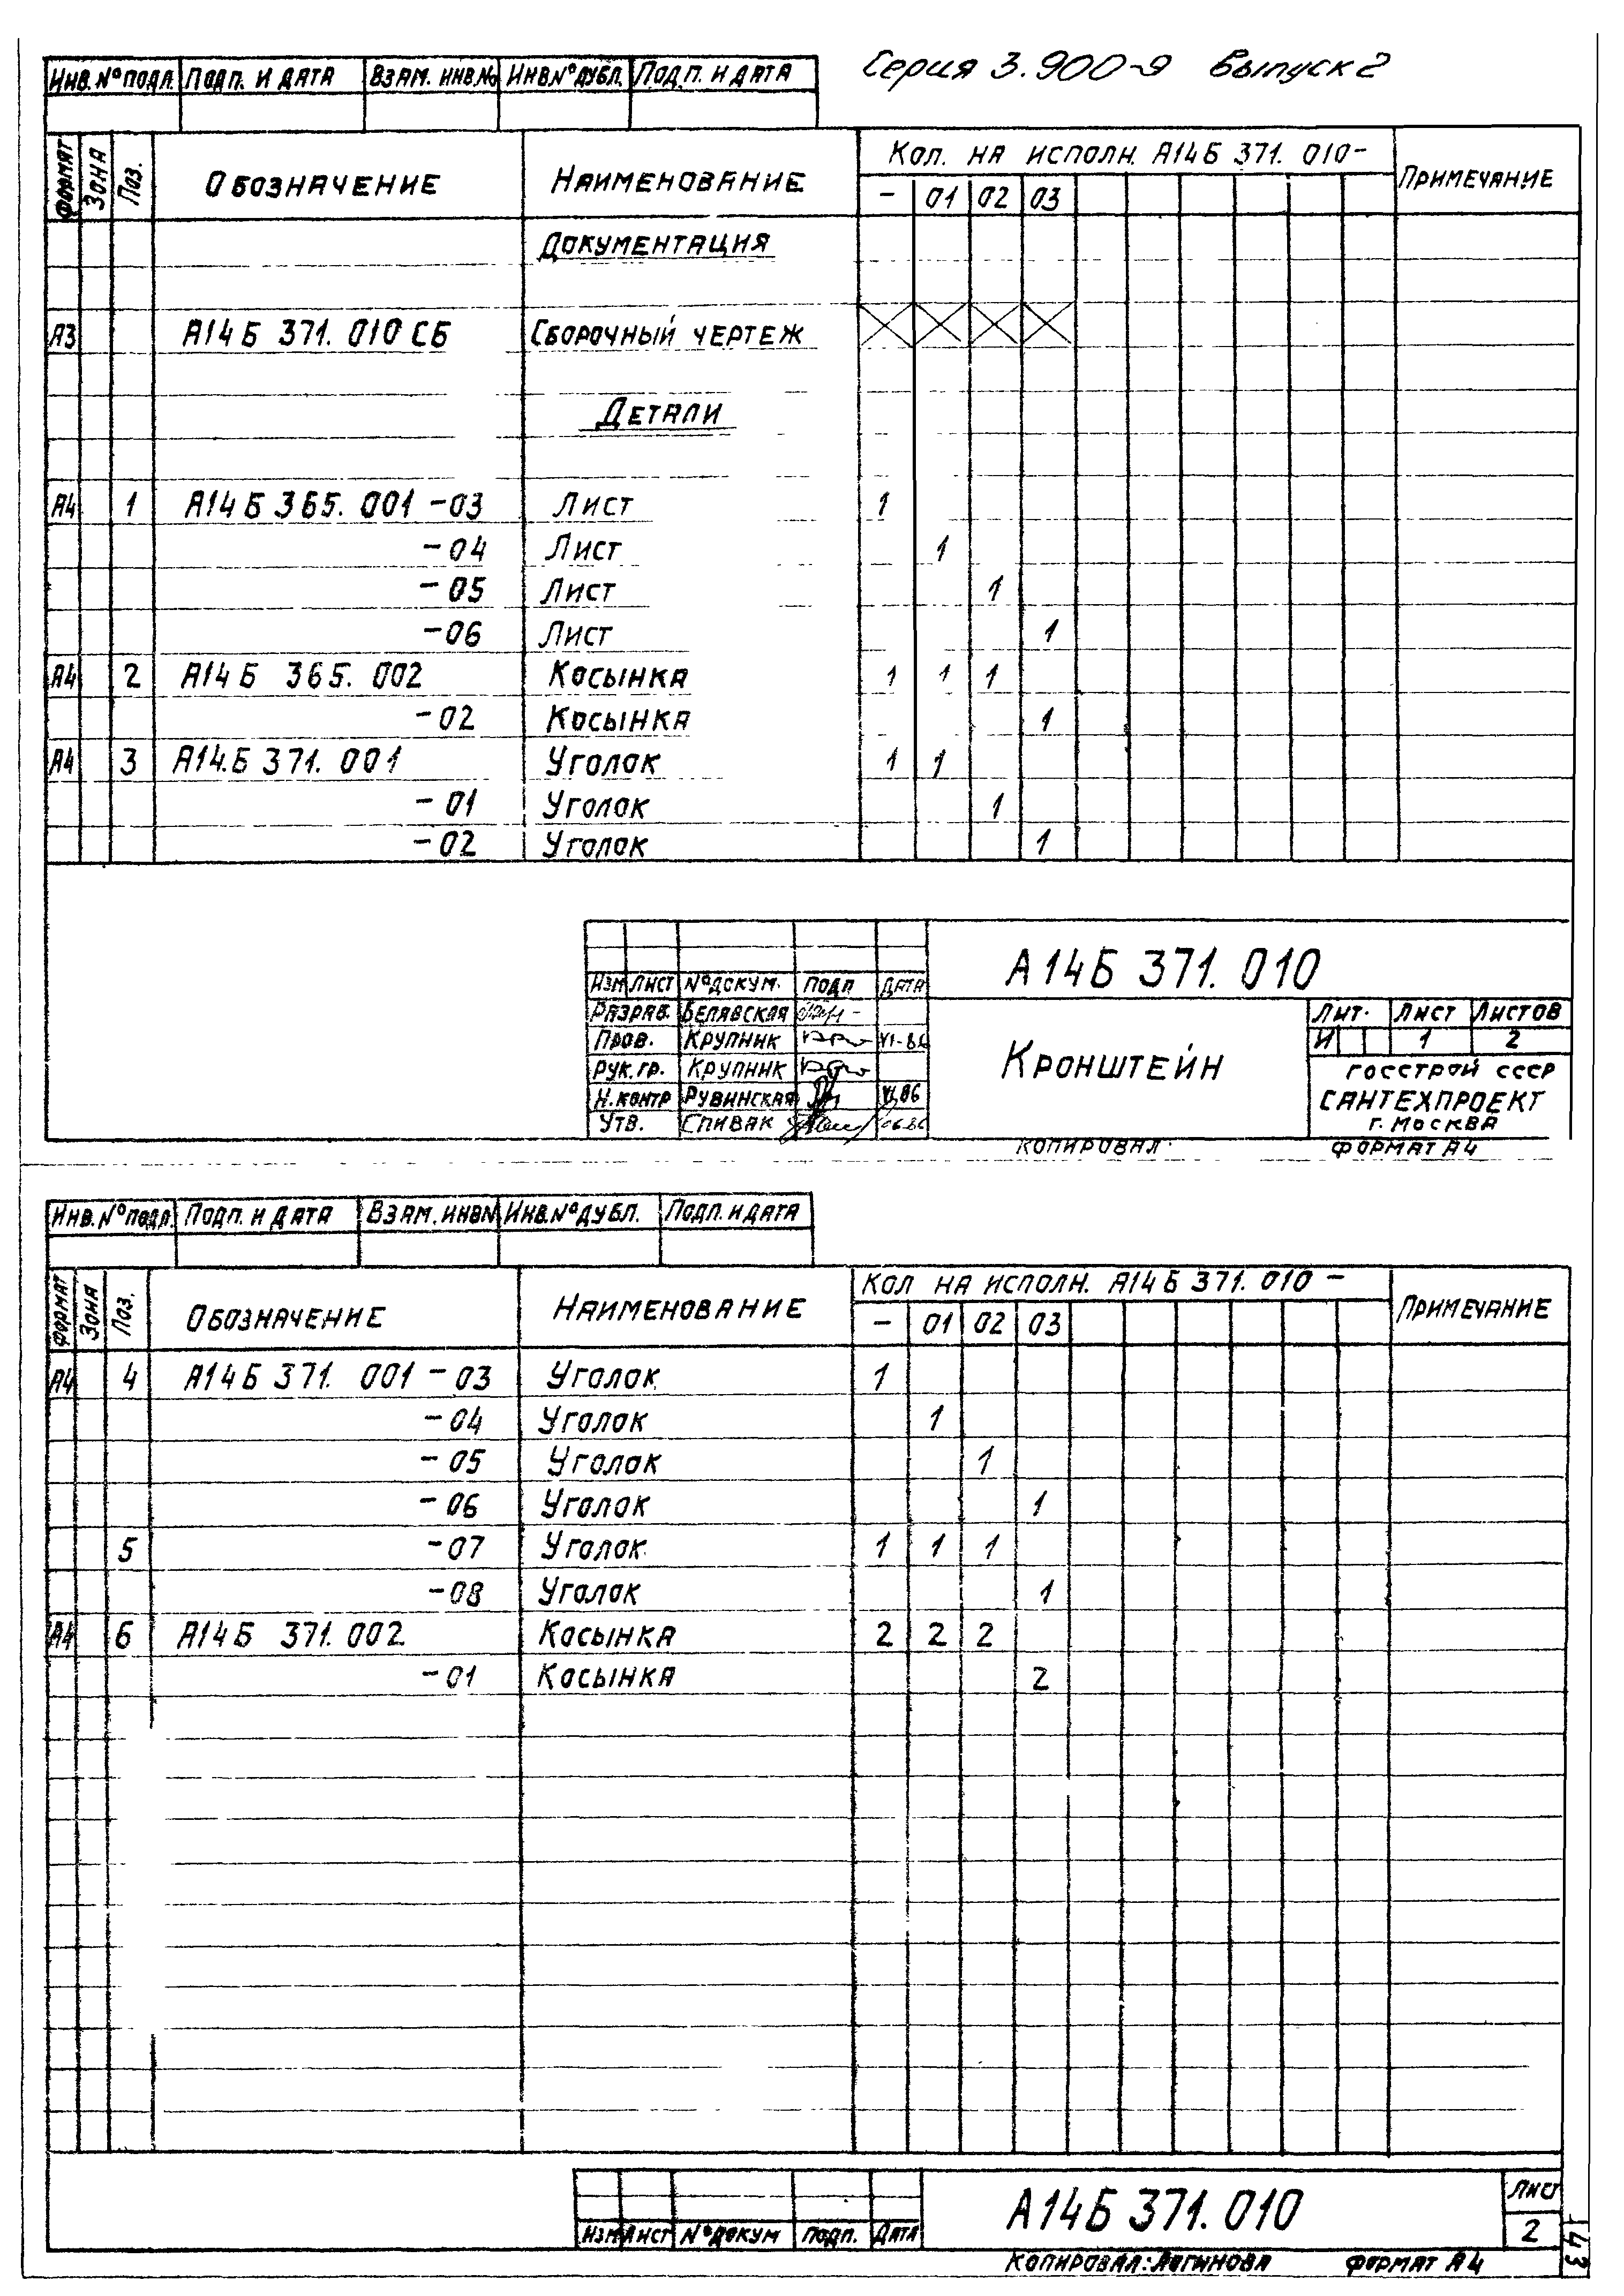 Серия 3.900-9 Выпуск 2
Инв. № подл. Подп. и дата Взам. инв. № Инв. № дубл. Подп. и дата
Формат Зона Поз. Обозначение Наименование Кол. на исполн. А14Б 371. 010- Примечание
- 01 02 03
Документация
А3 А14Б 371. 010 СБ Сборочный чертеж
Детали
А4 1 А14Б 365. 001 -03 Лист 1
-04 Лист 1
-05 Лист 1
-06 Лист 1
А4 2 А14Б 365. 002 Косынка 1 1 1
-02 Косынка 1
А4 3 А14.Б 371. 001 Уголок 1 1
-01 Уголок 1
-02 Уголок 1
А14Б 371. 010
Изм Лист № докум. Подп Дата
Разраб. Белявская
Пров. Крупник VI-86
Рук. гр. Крупник
Н. контр Рувинская VI.86
Утв. Спивак 06.86
Кронштейн
Лит. Лист Листов
И 1 2
Госстрой СССР
Сантехпроект
г. Москва
Копировал: Формат А4
Инв. № подл. Подп. и дата Взам. инв № Инв. № дубл. Подп. и дата
Формат Зона Поз. Обозначение Наименование Кол на исполн. А14Б 371. 010 - Примечание
- 01 02 03
А4 4 А14Б 371. 001 - 03 Уголок 1
-04 Уголок 1
-05 Уголок 1
-06 Уголок 1
5 -07 Уголок 1 1 1
-08 Уголок 1
А4 6 А14Б 371. 002. Косынка 2 2 2
-01 Косынка 2
А14Б 371. 010
Лист
2
Изм Лист № докум Подп. Дата
Копировал: Логинова Формат А4
143